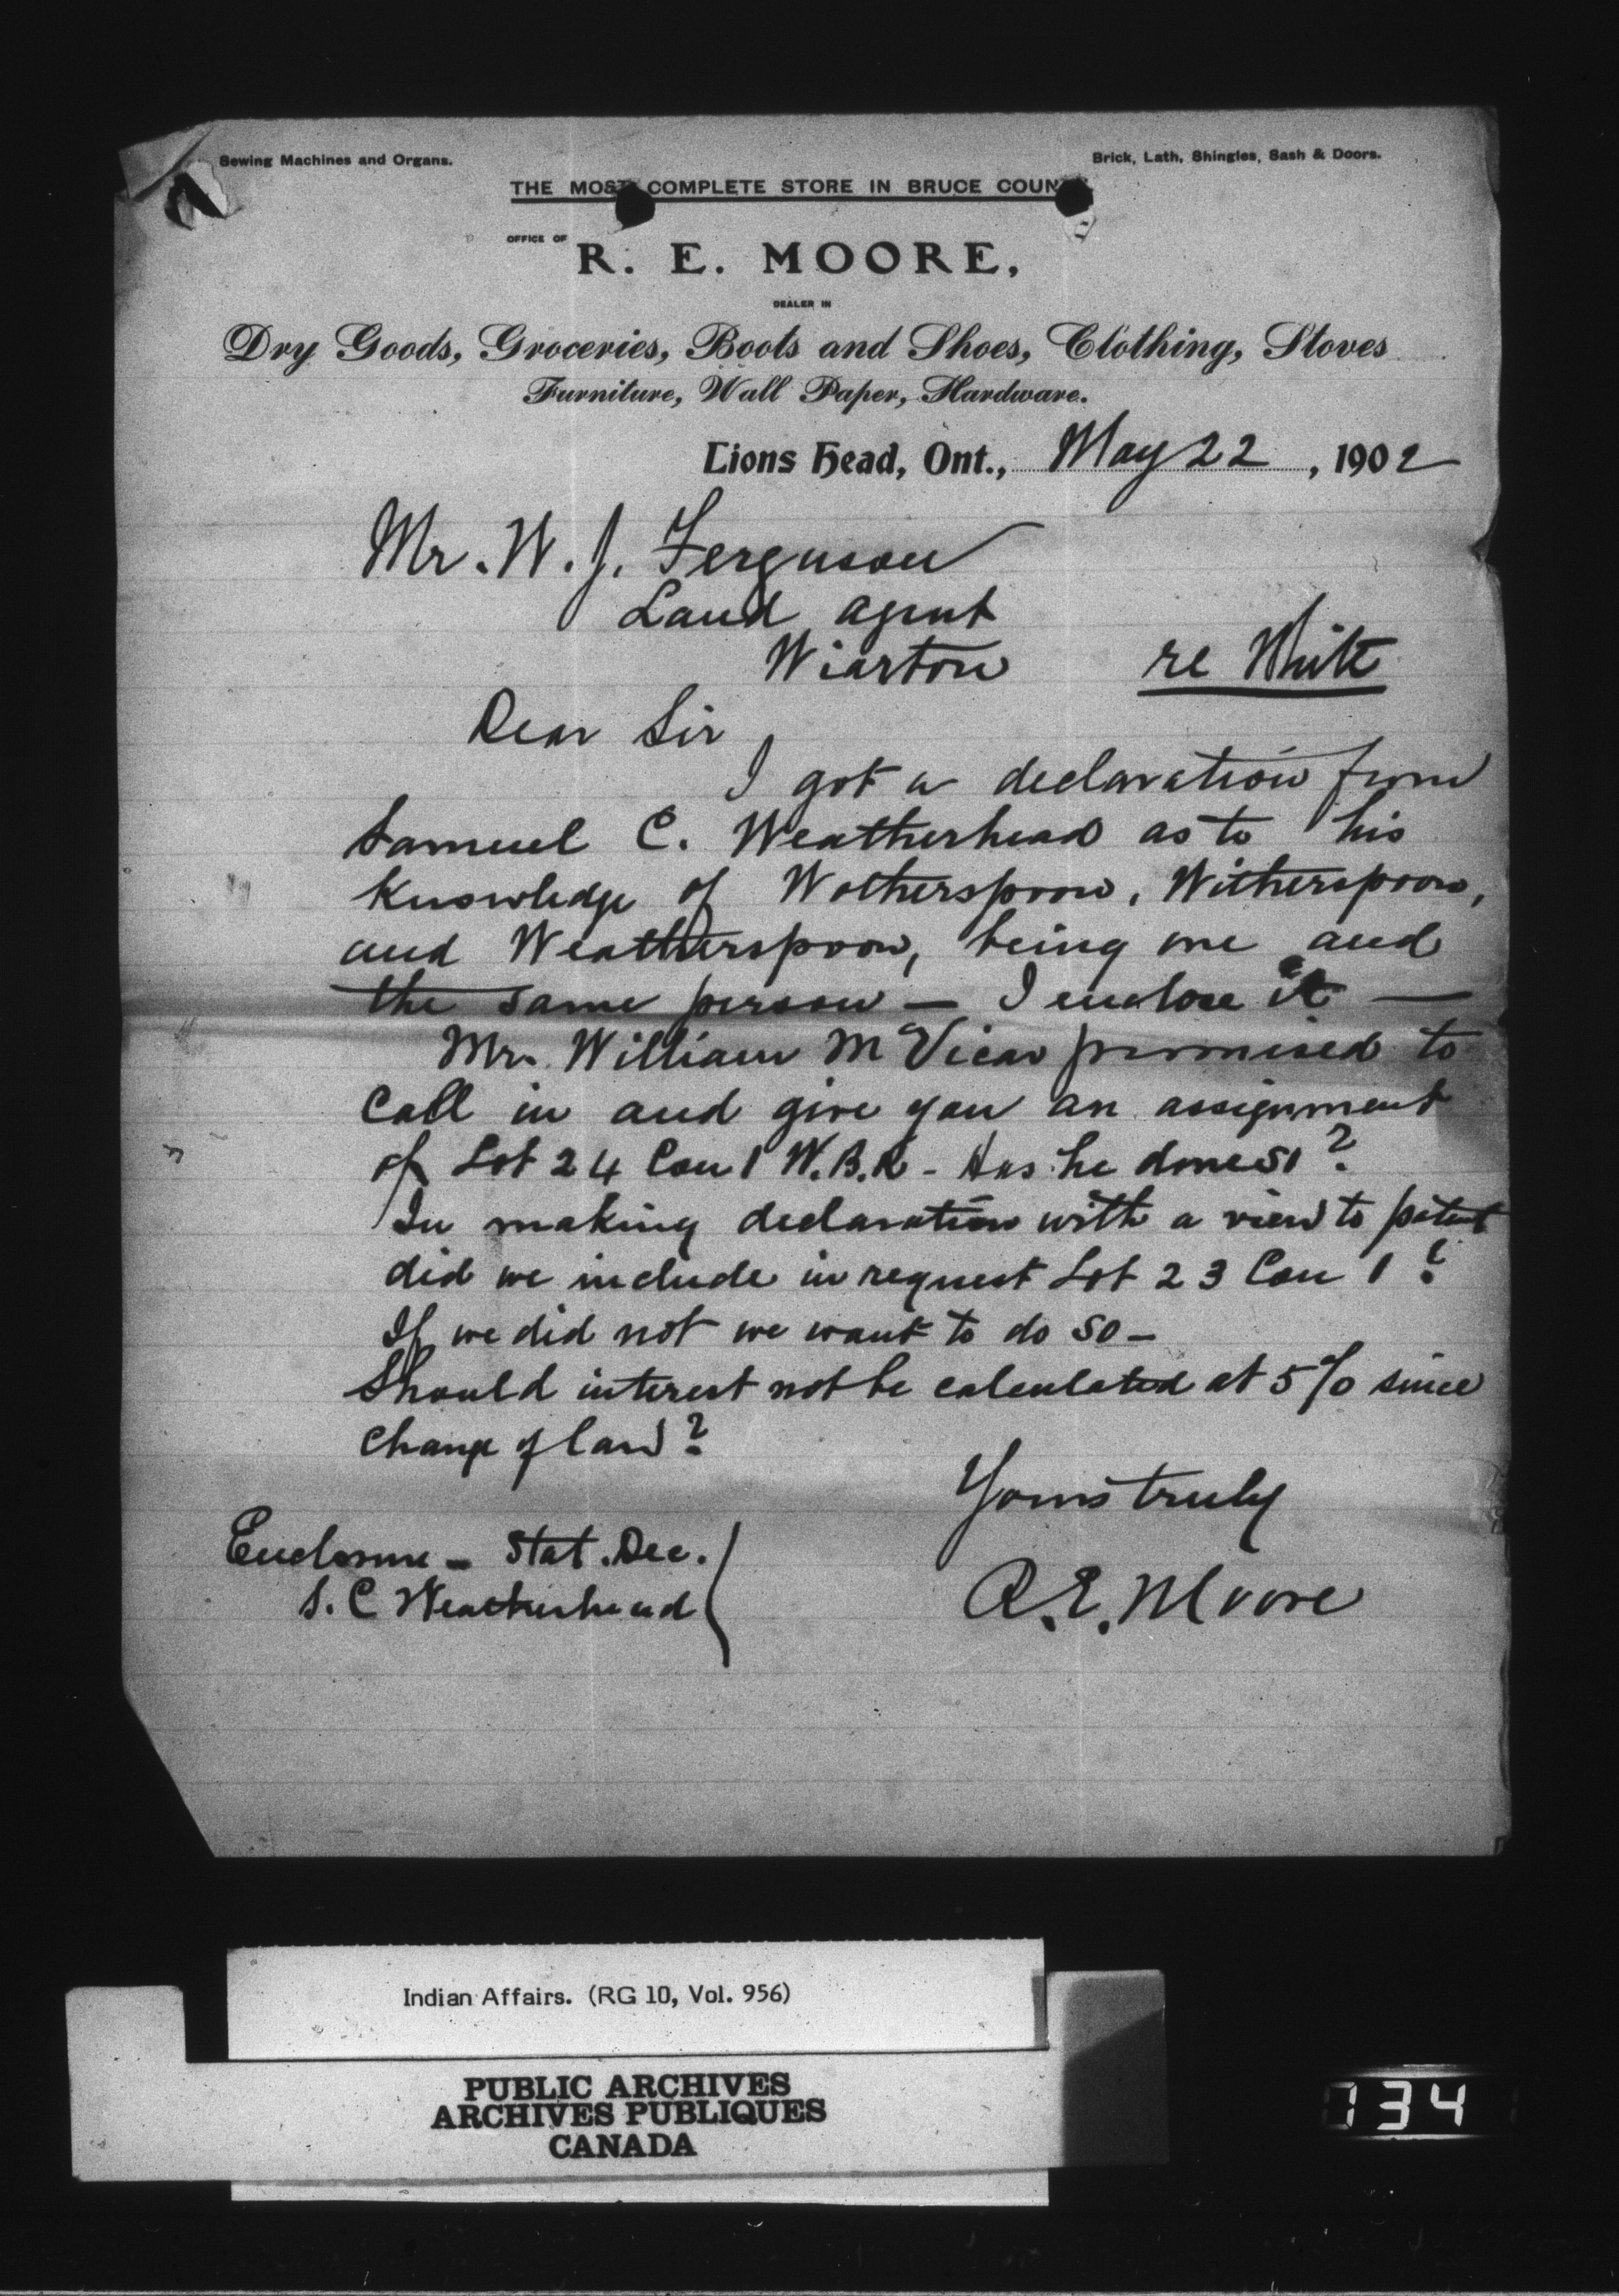 Sewing Machines and Organs.
Brick, Lath, Shingles, Sash & Doors.
THE MOST COMPLETE STORE IN BRUCE COUN
OFFICE OF
R. E. MOORE,
DEALER IN
Dry Goods, Groceries, Boots and Shoes, Clothing, Stoves
Furniture, Wall Paper, Hardware.
Lions Head, Ont., May 22, 1902
Mr. W. J. Ferguson
Land agent
Wiarton
re White
Dear Sir
I got a declaration from
Samuel C. Weatherhead as to his
knowledge of Wotherspoon, Witherspoon,
and Weatherspoon, being one and
the same person — I enclose it —
Mr. William McVicar promised to
call in and give you an assignment
of Lot 24 Con 1 W.B.R - Has he done so?
In making declaration with a view to patent
did we include in request Lot 23 Con 1?
If we did not we want to do so -
Should interest not be calculated at 5% since
change of law?
Yours truly
R.E. Moore
Enclosure - Stat. Dec.
S. C Weatherhead
Indian Affairs. (RG 10, Vol. 956)
PUBLIC ARCHIVES
ARCHIVES PUBLIQUES
CANADA
134